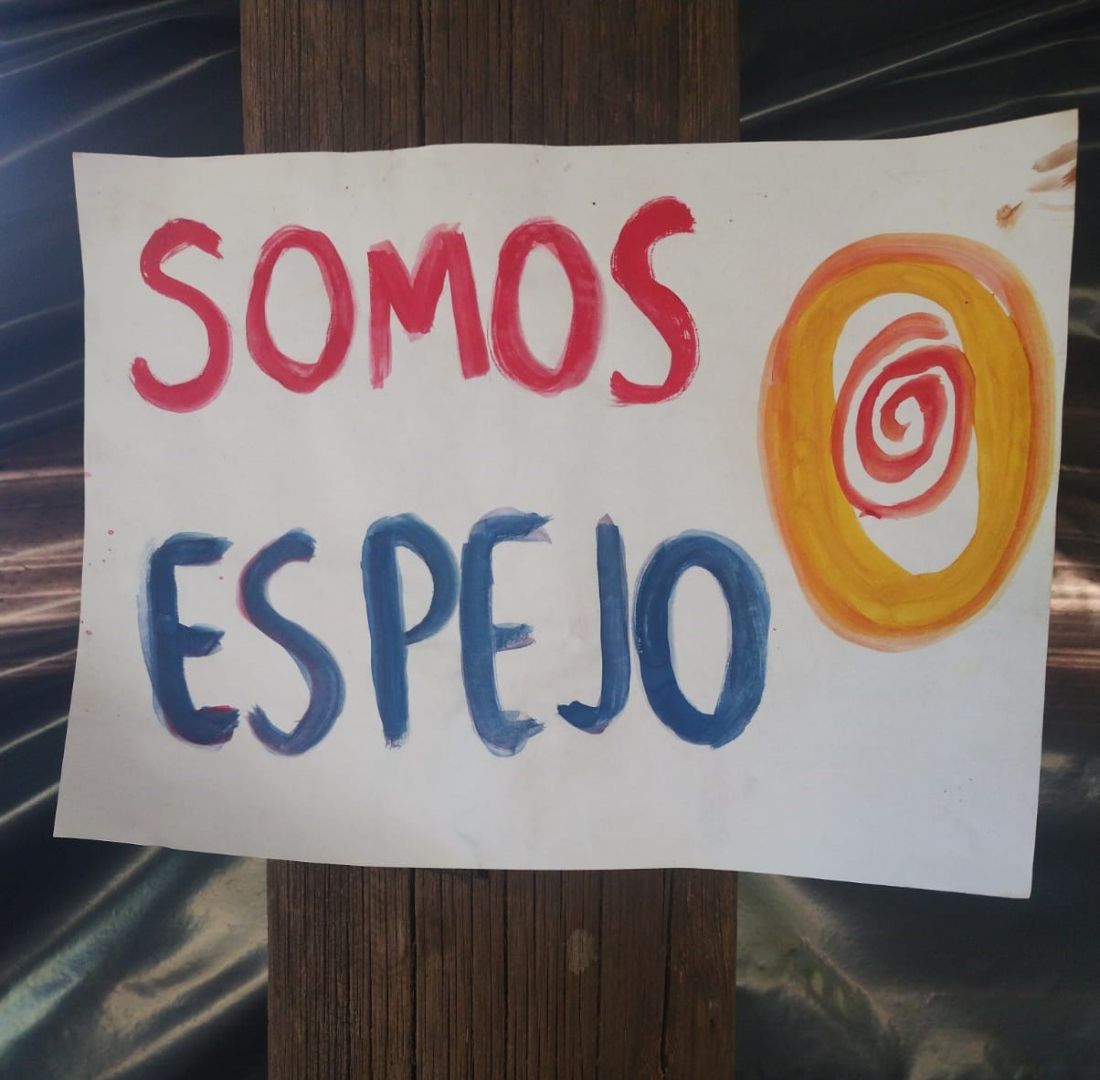 SOMOS
ESPEJO